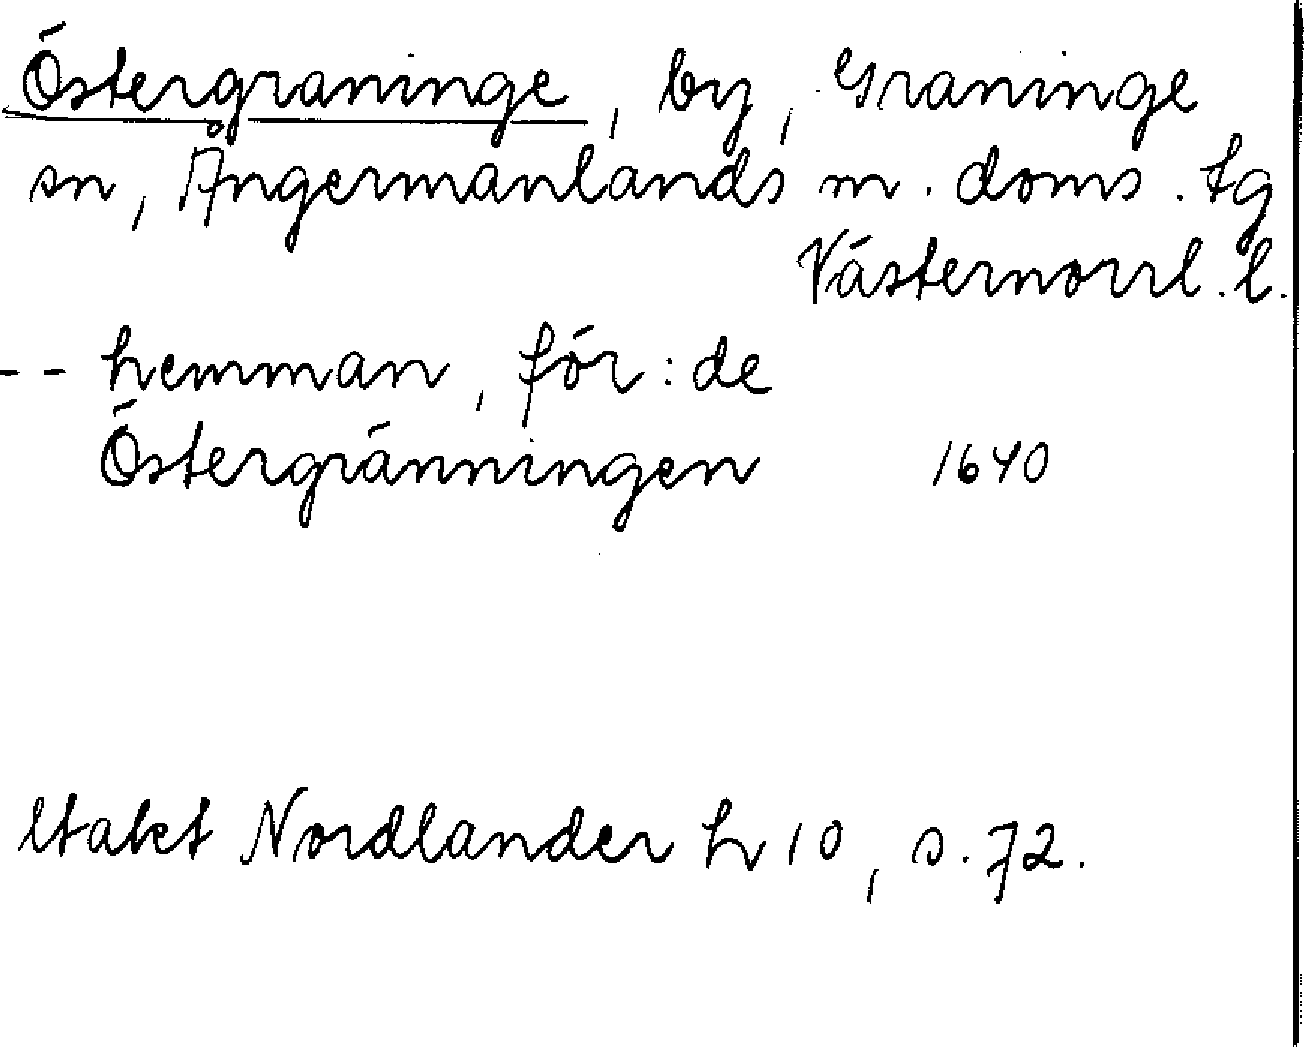 Östergraninge, by, Graninge
sn, Ångermanlands m. doms. tg
Västernorrl. l.
-- hemman, för: de
Östergränningen 1640
Utakt Nordlander h 10, s. 72.